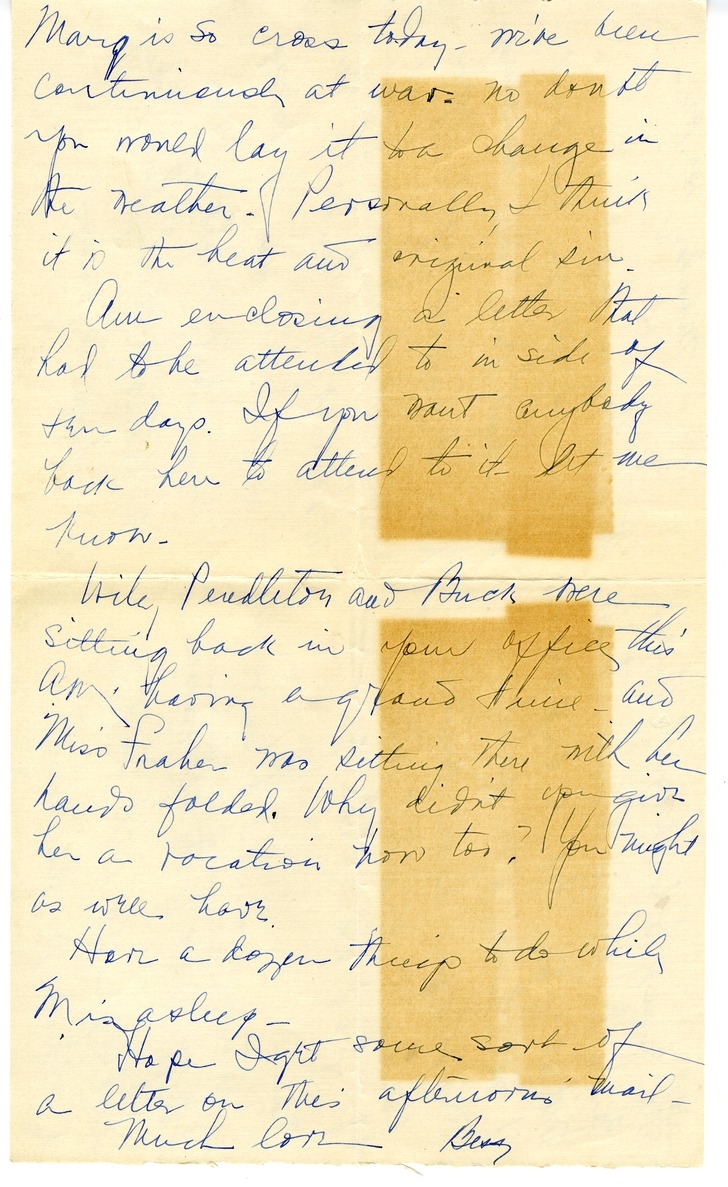 Marg is so cross today - we've been
continuously at war. no doubt
you would lay it to a change in
the weather. Personally, I think
it is the heat and original sin.
Am enclosing a letter that
had to be attended to in side of
ten days. If you want anybody
back here to attend to it - let me
know -
Pendleton and Buck were
sitting back in your office this
A.M. having a grand time - and
Miss Fraher was sitting there with her
hands folded. Why didn't you give
her a vacation now too? You might
as well have.
Have a dozen things to do while
M is asleep -
Hope I get some sort of
a letter on this afternoons mail -
Much love Bess